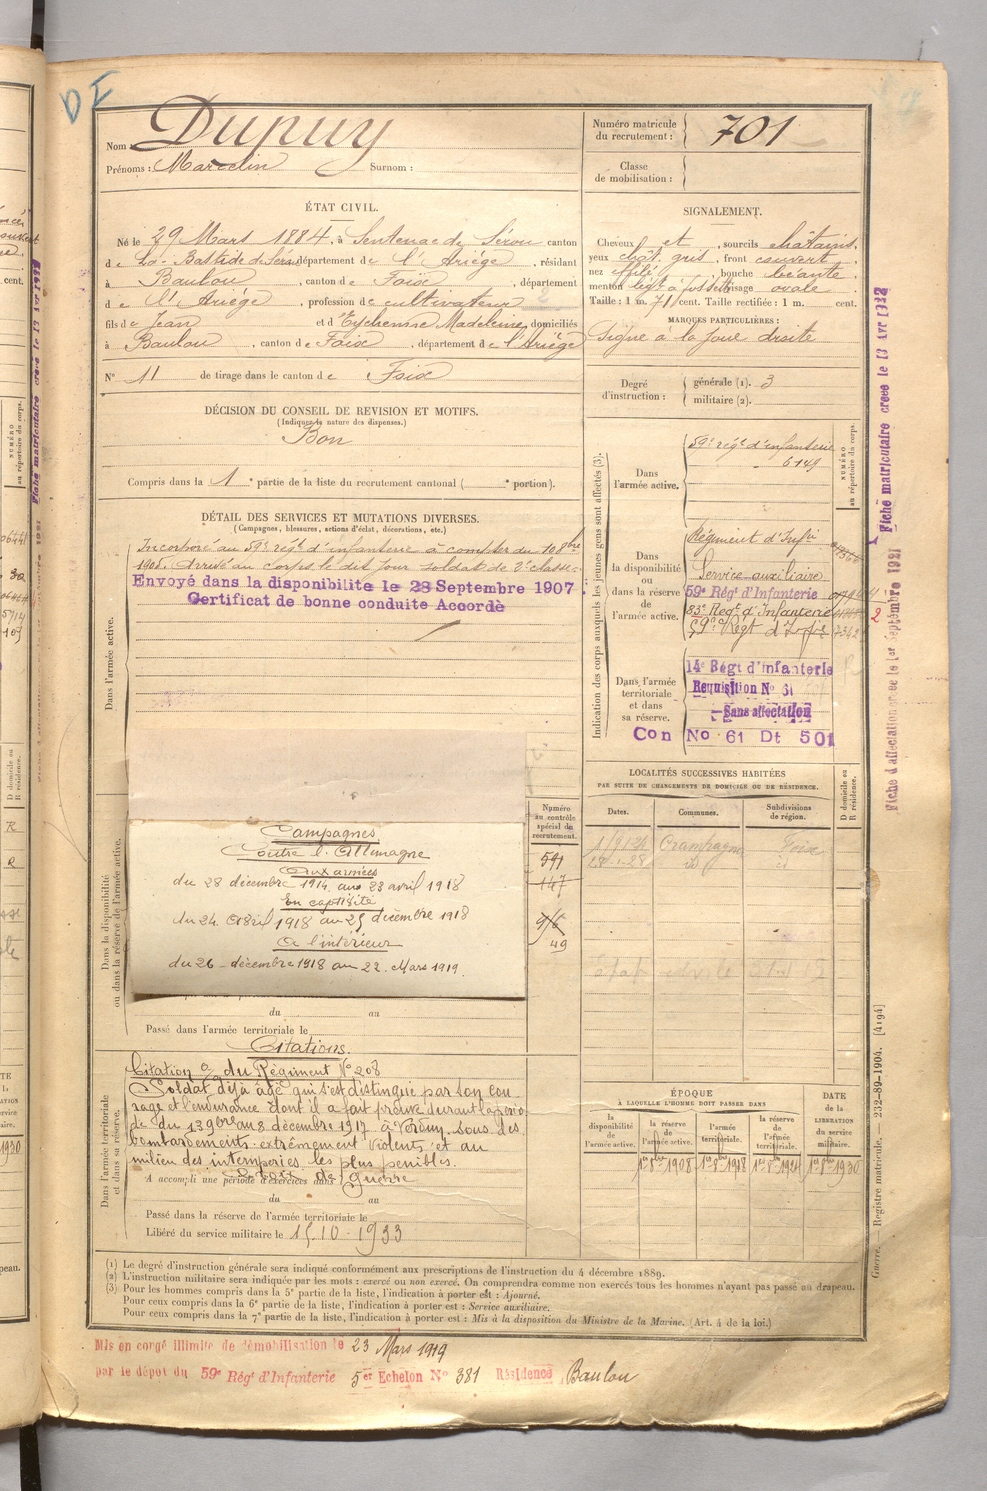 DF
Nom : Dupuy
Prénoms : Marcelin Surnom :
Numéro matricule du recrutement : 701
Classe de mobilisation :
ÉTAT CIVIL.
Né le 29 Mars 1884, à Sentenac de Sérou canton
de La Bastide de Sérou département de l'Ariége, résidant
à Baulou, canton de Foix, département
de l'Ariége, profession de cultivateur
fils de Jean et d'Eychenne Madeleine, domiciliés
à Baulou, canton de Foix, département de l'Ariége
N° 11 de tirage dans le canton de Foix
SIGNALEMENT.
Cheveux et, sourcils châtains,
yeux chât. gris, front couvert,
nez effilé, bouche béante,
menton à fossette visage ovale.
Taille : 1 m. 71 cent. Taille rectifiée : 1 m. cent.
MARQUES PARTICULIÈRES :
Signe à la joue droite
Degré d'instruction : générale (1). 3
militaire (2).
DÉCISION DU CONSEIL DE REVISION ET MOTIFS.
(Indiquer la nature des dispenses.)
Bon
Compris dans la 1e partie de la liste du recrutement cantonal ( e portion).
DÉTAIL DES SERVICES ET MUTATIONS DIVERSES.
(Campagnes, blessures, actions d'éclat, décorations, etc.)
Dans l'armée active.
Incorporé au 59e régt d'infanterie à compter du
Arrivé au corps le dit jour soldat de 2e classe.
Envoyé dans la disponibilité le 28 Septembre 1907
Certificat de bonne conduite Accordé
Indication des corps auxquels les jeunes gens sont affectés (3).
NUMÉRO au répertoire du corps.
Dans l'armée active.
59e régt d'infanterie
6149
Dans la disponibilité ou dans la réserve de l'armée active.
Régiment d'Infie
Service auxiliaire
59e Régt d'Infanterie
83e Regt d'Infanterie
59e Régt d'Infie 7342
Dans l'armée territoriale et dans sa réserve.
14e Régt d'Infanterie
Requisition No 61
Sans affectation
Con No 61 Dt 501
Fiche matriculaire créée le 13 Avr 1932
Fiche d'affectation créée le 1er Septembre 1921
LOCALITÉS SUCCESSIVES HABITÉES
PAR SUITE DE CHANGEMENTS DE DOMICILE OU DE RÉSIDENCE.
Dates. Communes. Subdivisions de région. D domicile ou R résidence.
Crampagna Foix
28-1-28 id id
Dans la disponibilité ou dans la réserve de l'armée active.
Numéro au contrôle spécial du recrutement.
591
147
49
Campagnes
Contre l'Allemagne
Aux armées
du 28 décembre 1914 au 23 avril 1918
En captivité
du 24 Avril 1918 au 25 décembre 1918
A l'intérieur
du 26 décembre 1918 au 22 Mars 1919.
du au
Passé dans l'armée territoriale le
Citations.
Dans l'armée territoriale et dans sa réserve.
Citation à du Régiment N° 208
Soldat déjà âgé qui s'est distingué par son cou-
rage et l'endurance dont il a fait preuve durant la pério-
de du 13 9bre au 8 décembre 1917 à sous des
bombardements extrêmement violents et au
milieu des intempéries les plus pénibles.
Croix de guerre
A accompli une période d'exercices dans
du au
Passé dans la réserve de l'armée territoriale le
Libéré du service militaire le 15-10-1933
ÉPOQUE
À LAQUELLE L'HOMME DOIT PASSER DANS
la disponibilité de l'armée active.
la réserve de l'armée active.
l'armée territoriale.
la réserve de l'armée territoriale.
DATE de la LIBÉRATION du service militaire.
1er 8bre 1908 1er 8bre 1918 1er 8bre 1924 1er 8bre 1930
(1) Le degré d'instruction générale sera indiqué conformément aux prescriptions de l'instruction du 4 décembre 1889.
(2) L'instruction militaire sera indiquée par les mots : exercé ou non exercé. On comprendra comme non exercés tous les hommes n'ayant pas passé au drapeau.
(3) Pour les hommes compris dans la 5e partie de la liste, l'indication à porter est : Ajourné.
Pour ceux compris dans la 6e partie de la liste, l'indication à porter est : Service auxiliaire.
Pour ceux compris dans la 7e partie de la liste, l'indication à porter est : Mis à la disposition du Ministre de la Marine. (Art. 4 de la loi.)
Guerre. — Registre matricule. — 232-89-1904. [4194]
Mis en congé illimité de démobilisation le 23 Mars 1919
par le dépôt du 59e Régt d'Infanterie 5er Echelon No 381 Résidence Baulou